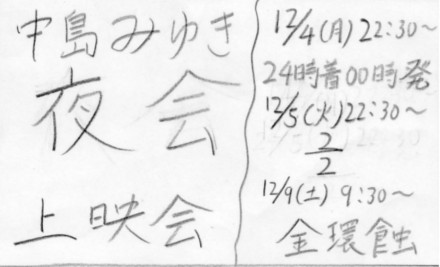 中島みゆき
夜会
上映会
12/4(月)22:30〜
24時着00時発
12/5(火)22:30〜
2/2
12/9(土) 9:30〜
金環蝕